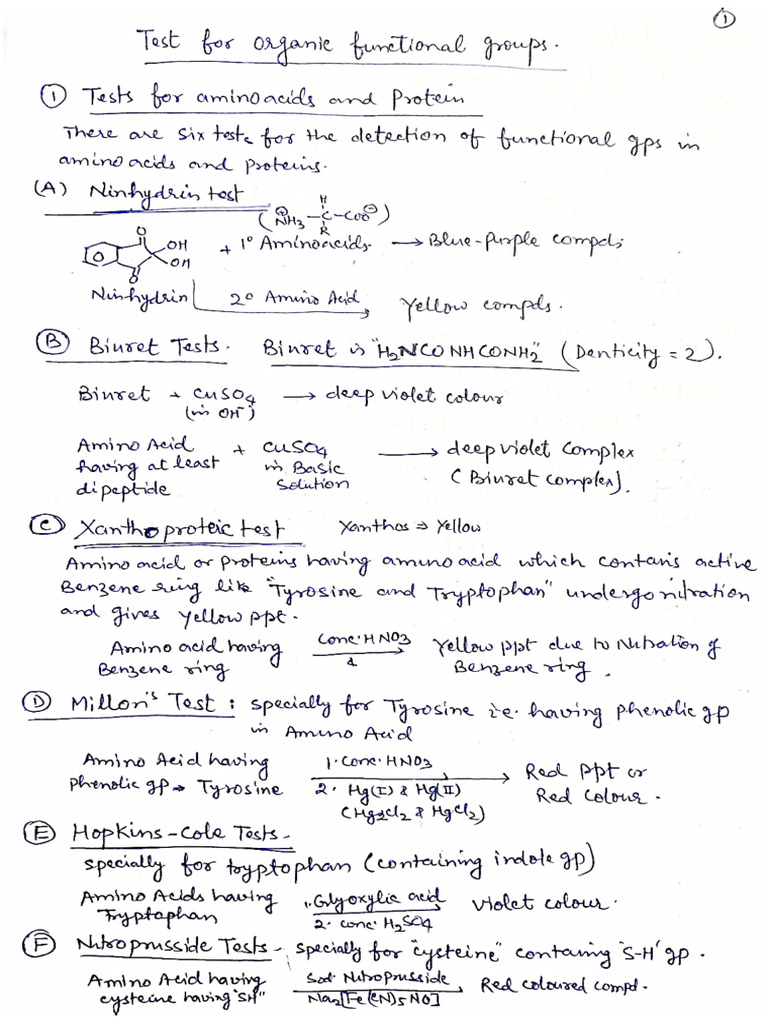 ①
Test for organic functional groups.
① Tests for aminoacids and Protein
There are six tests for the detection of functional gps in
aminoacids and proteins.
(A) Ninhydrin test
(NH3⊕-C-COO⊖)
H
R
O
OH
OH
O
+ 1° Aminoacids. → Blue-Purple compds;
Ninhydrin 2° Amino Acid → Yellow compds.
Ⓑ Biuret Tests. Biuret is "H2NCONHCONH2" (Denticity = 2).
Biuret + CuSO4 → deep violet colour
(in OH⁻)
Amino Acid + CuSO4 → deep violet complex
having at least in Basic (Biuret complex).
dipeptide Solution
Ⓒ Xanthoproteic test Xanthos ⇒ Yellow
Amino acid or Proteins having amino acid which contains active
Benzene ring like "Tyrosine and Tryptophan" undergo nitration
and gives yellow ppt.
Amino acid having Conc. HNO3 → Yellow ppt due to Nitration of
Benzene ring Δ Benzene ring.
Ⓓ Millon's Test : specially for Tyrosine i.e. having phenolic gp
in Amino Acid
Amino Acid having 1. Conc. HNO3 → Red ppt or
Phenolic gp → Tyrosine 2. Hg(I) & Hg(II) Red colour.
(Hg2Cl2 & HgCl2)
Ⓔ Hopkins-Cole Tests-
specially for tryptophan (containing indole gp)
Amino Acids having 1. Glyoxylic acid Violet colour.
Tryptophan 2. conc. H2SO4
Ⓕ Nitroprusside Tests - specially for "cysteine" containing 'S-H' gp.
Amino Acid having Sod. Nitroprusside Red coloured compd.
cysteine having "SH" Na2[Fe(CN)5NO]